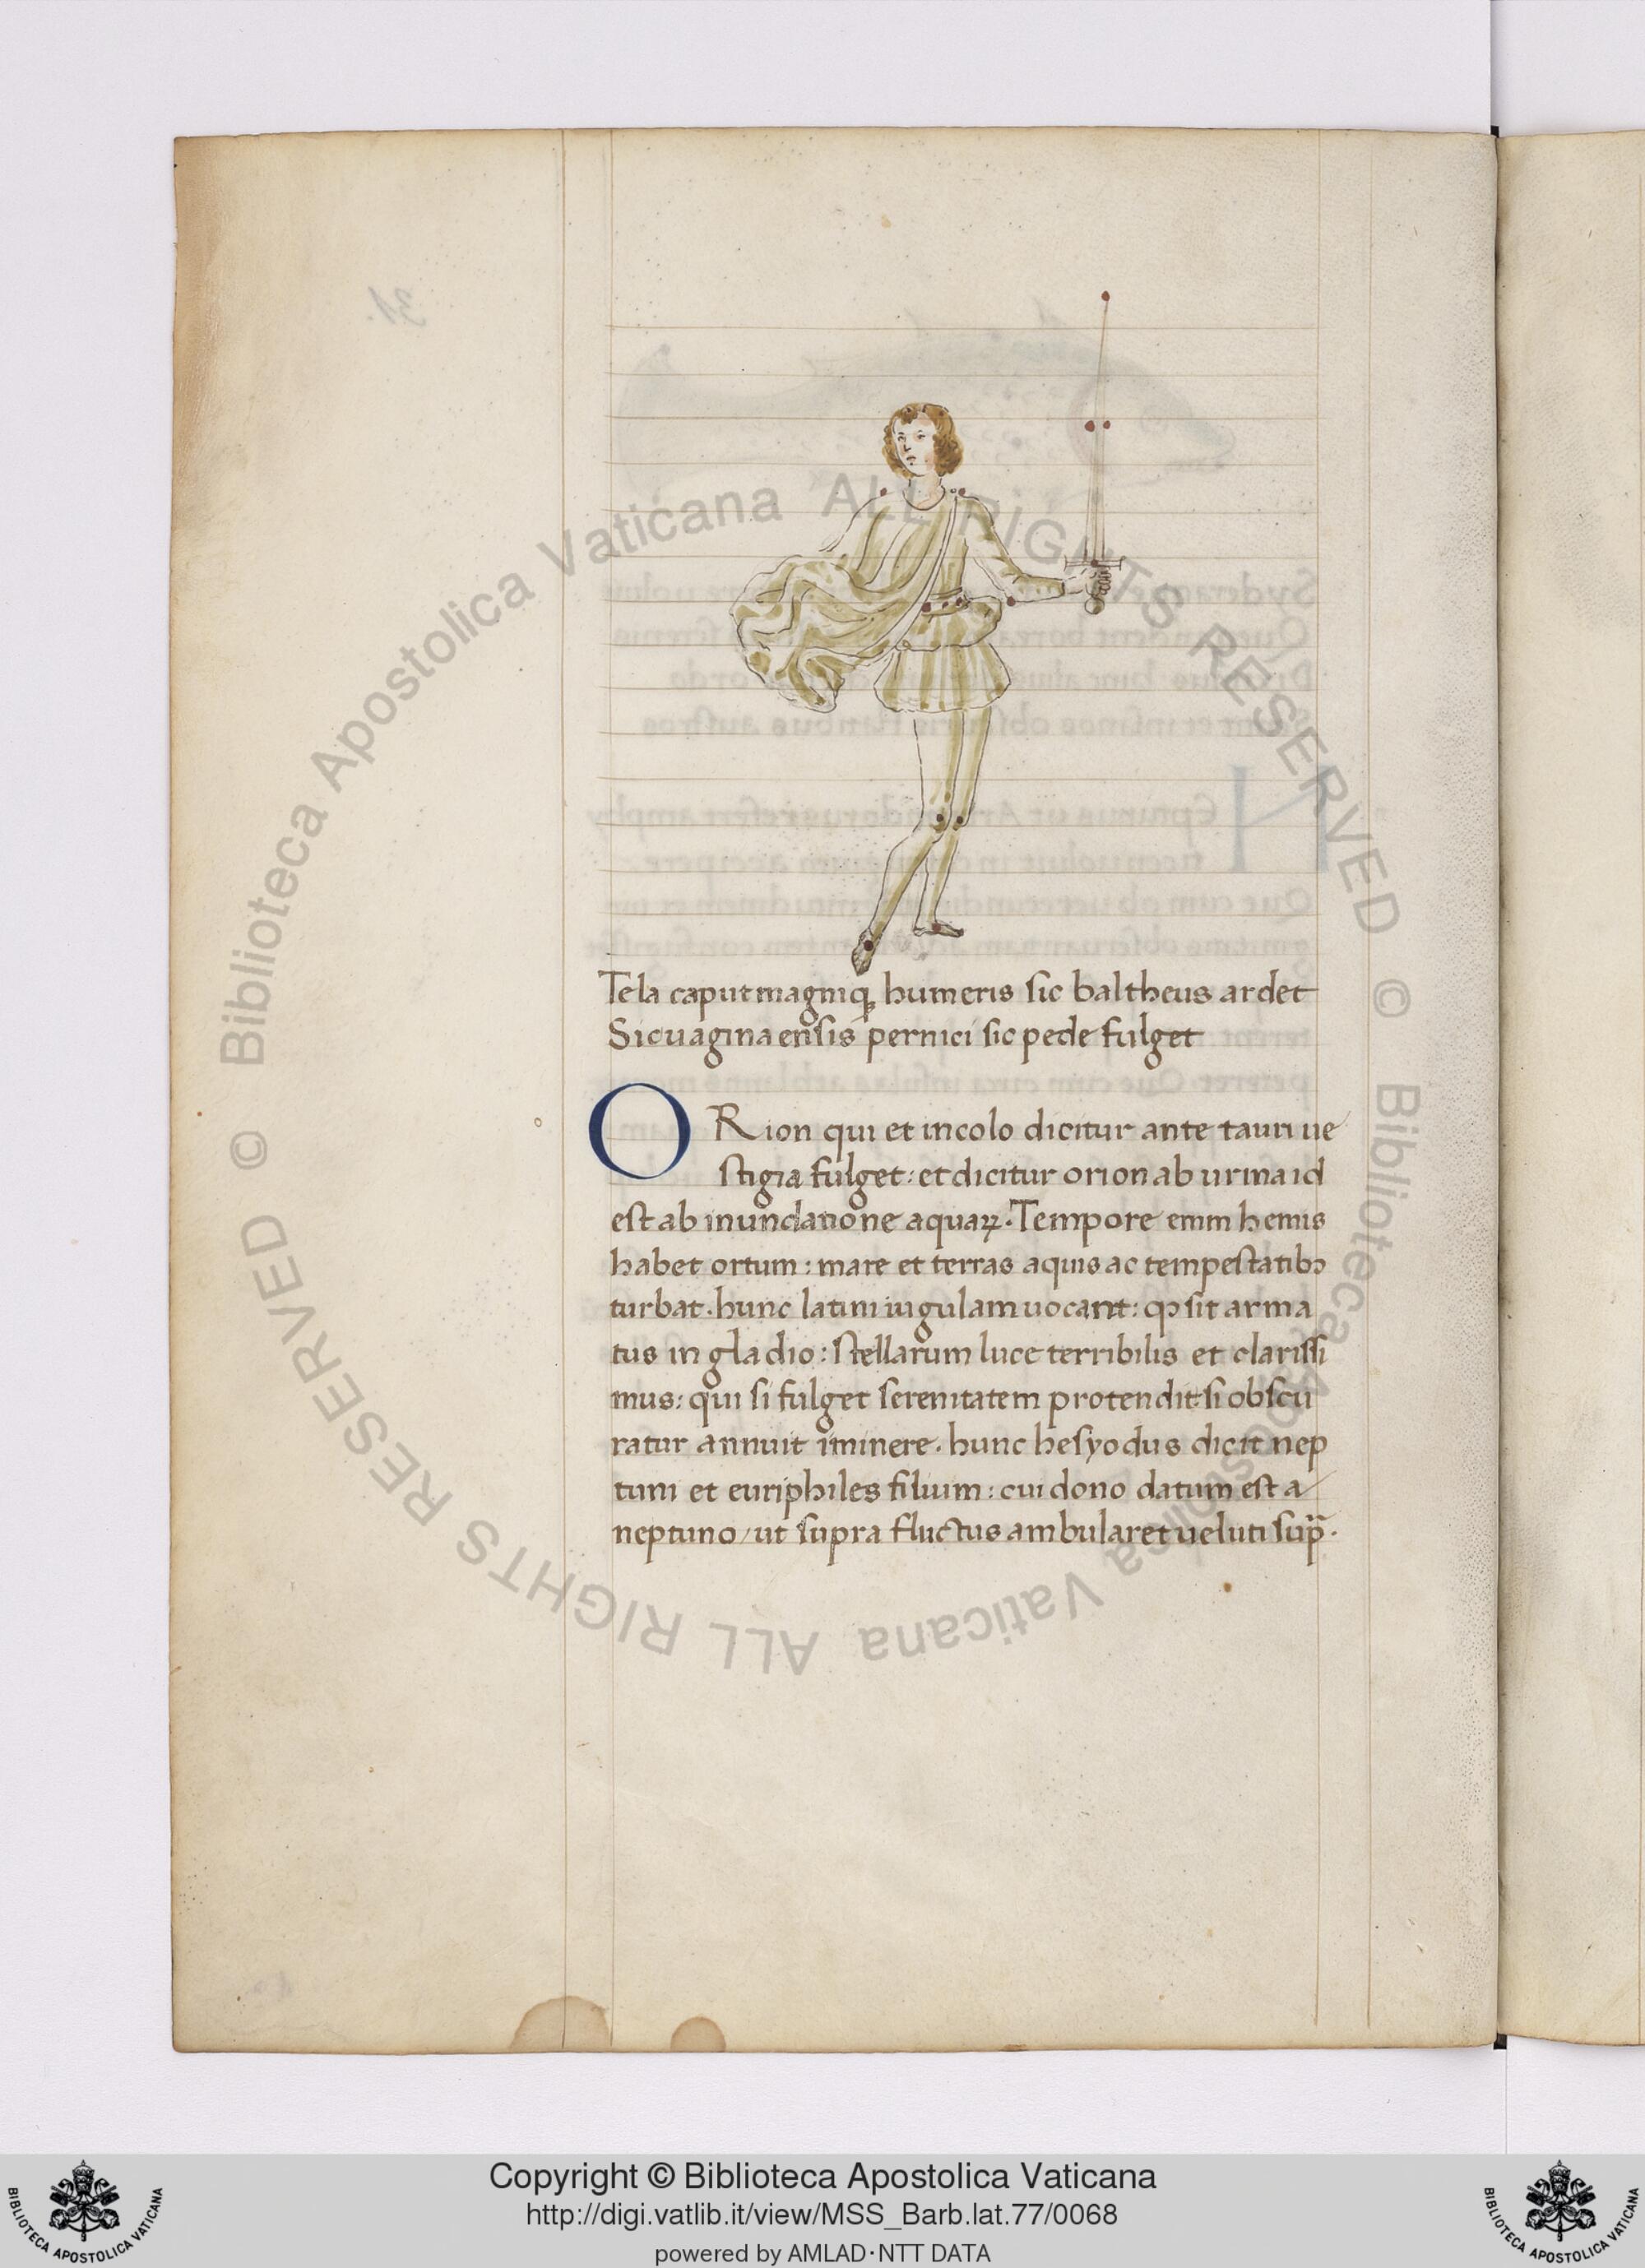 Tela caput magniqꝫ humeris sic baltheus ardet
Sic uagina ensis pernici sic pede fulget
ORion qui et incolo dicitur ante tauri ue
stigia fulget: et dicitur orion ab urina id
est ab inundatione aquaꝝ. Tempore enim hemis
habet ortum: mare et terras aquis ac tempestatibꝫ
turbat. hunc latini iugulam uocant: ꝙ sit arma
tus in gladio: stellarum luce terribilis et clarissi
mus: qui si fulget serenitatem protendit: si obscu
ratur annuit iminere. hunc hesyodus dicit nep
tuni et euriphiles filium: cui dono datum est a
neptuno/ut supra fluctus ambularet ueluti sup̃.
© Biblioteca Apostolica Vaticana ALL RIGHTS RESERVED
© Biblioteca Apostolica Vaticana ALL RIGHTS RESERVED
Copyright © Biblioteca Apostolica Vaticana
http://digi.vatlib.it/view/MSS_Barb.lat.77/0068
powered by AMLAD·NTT DATA
BIBLIOTECA APOSTOLICA VATICANA
BIBLIOTECA APOSTOLICA VATICANA